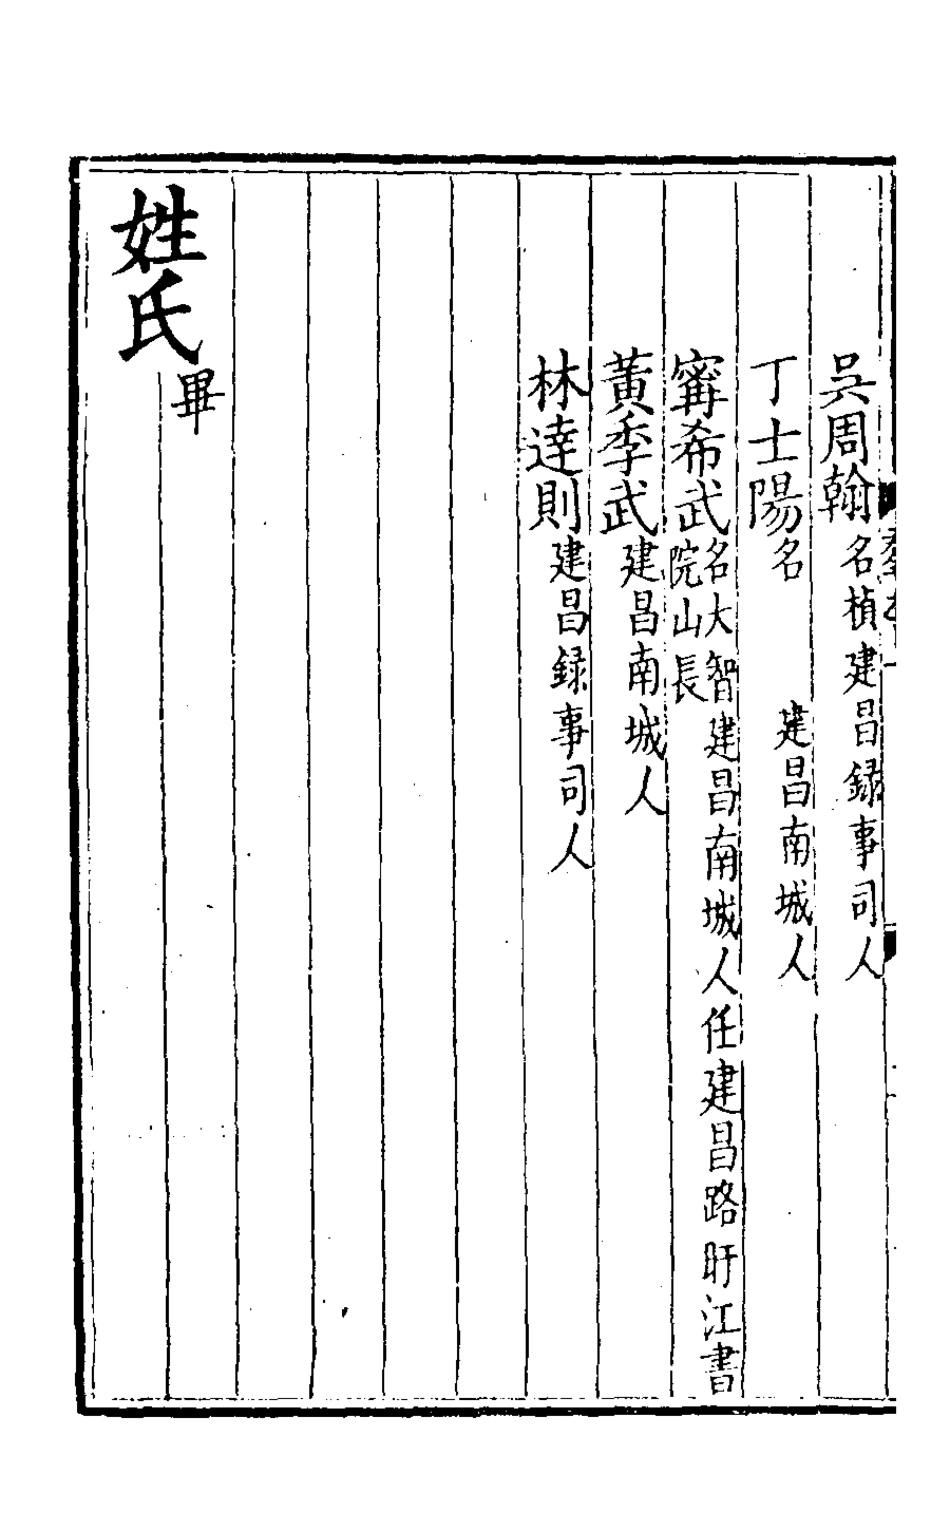 吳周翰名楨建昌録事司人
丁士陽名 建昌南城人
寗希武名大智建昌南城人任建昌路盱江書院山長
黃季武建昌南城人
林逹則建昌録事司人
姓氏畢